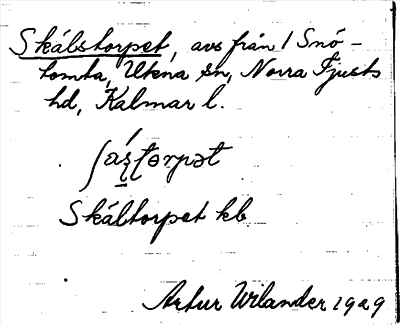 Skálstorpet, avs från 1 Snö-
tomta, Ukna sn, Norra Tjusts
hd, Kalmar l.
Skáltorpet kb.
Artur Wilander 1929